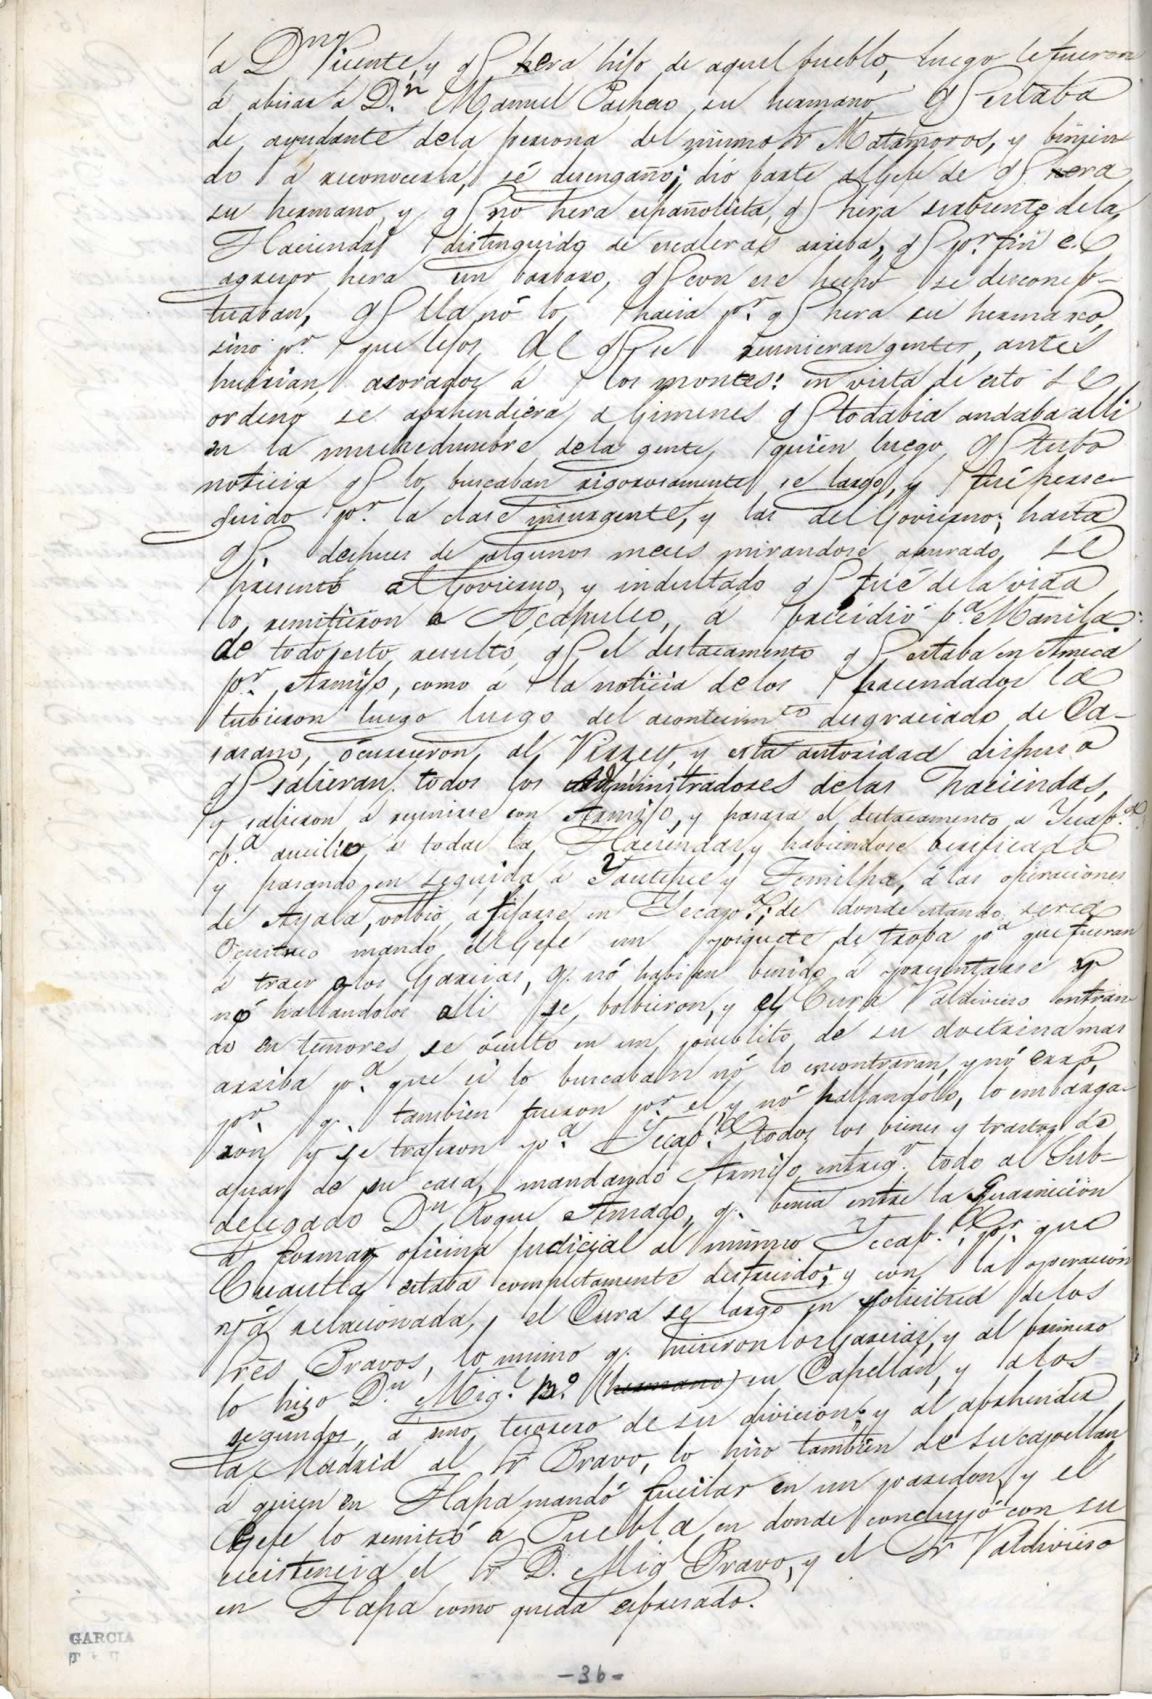 a Dⁿ Vicente, y q̃ hera hijo de aquel pueblo, luego le fueron
á abisar á D.ⁿ Manuel Pacheco su hermano q̃ estaba
de ayudante dela persona del mismo Sr Matamoros, y binien
do á reconocerla, sé desengañó; dió parte al Gefe de q̃ hera
su hermano, y q̃ no hera españolista, q̃ hera serbiente dela
Hacienda distinguido de escaleras arriba, q̃ p.ʳ fin el
agresor hera un barbaro, q̃ con ese hecho se desconsep-
tuaban, q̃ lla nó lo hacia p.ʳ q̃ hera su hermano,
sino p.ʳ que lejos de q̃ se reunieran gentes, antes
huirian, asorados á los montes: en vista de esto se
ordeno se aprehendiera, a Gimenes q̃ todabia andaba alli
en la muchedumbre dela gente, quien luego q̃ tubo
noticia q̃ lo buscaban rigorosamente, se largo, y fué perse-
guido p.ʳ la clase insurgente, y las del Govierno; hasta
q̃ despues de algunos meses mirandose apurado, se
presentó al Govierno, y indultado q̃ fué de la vida
lo remitieron a Acapulco, á precidió p.ª Manila:
de todo esto resultó q̃ el destacamento q̃ estaba en Ameca
p.ʳ Armijo, como á la noticia de los hacendados la
tubieron luego luego del acontecim.ᵗᵒ desgraciado de Ca-
sasano, ócurrieron, al Virrey, y esta autoridad dispuso
q̃ salieran todos los administradores de las haciendas,
y salieron á reunirse con Armijo, y pasara el destacamento a Tecap.ᵈ
p.ª aucilio, á todas las Haciendas, y habiendose berificado
y pasando en seguida á Yautepec y Temilpa, á las operaciones
de Ayala, volbió, a fijarse en Tecap.ᵈ; de donde estando serca
Ocuituco mandó el Gefe un piquete de tropa p.ª que fueran
á traer a los Garcias, q. nó habian benido á presentarse y
nó hallandolos alli se bolbieron, y el Cura Valdivieso entran
do en temores, se ócultó en un pueblito de su doctrina mas
arriba p.ª que si lo buscaban nó lo encontraran, y nó erró,
p.ʳ q. tambien fueron p.ʳ el y nó hallandolo, lo embarga-
ron y se trajeron p.ª Tecap.ᵈ todos los bienes y trastos de
ajuar de su casa, mandando Armijo entreg.ʳ todo al Sub-
delegado Dⁿ Roque Amado, q. benia entre la Guarnicion
á formar oficina judicial al mismo Tecap.ᵈ p.ʳ que
Cuautla estaba completamente destruido; y con la operación
ya relacionada, el Cura se largo en solicitud de los
tres Bravos, lo mismo q. hicieron los Garcias, y al primero
lo hizo D.ⁿ Mig.ˡ B.º (hermano) su Capellan, y a los
segundos, á uno, tersero de su divicion; y al aprehender
la Madrid al Sr Bravo, lo hizo tambien de su capellan
á quien en Tlapa mandó fucilar en un paredon, y el
Gefe lo remitió a Puebla, en donde concluyó con su
ecistencia el Sr D. Mig.ˡ Bravo, y el Sr Valdivieso
en Tlapa como queda espresado.
GARCIA
-36-